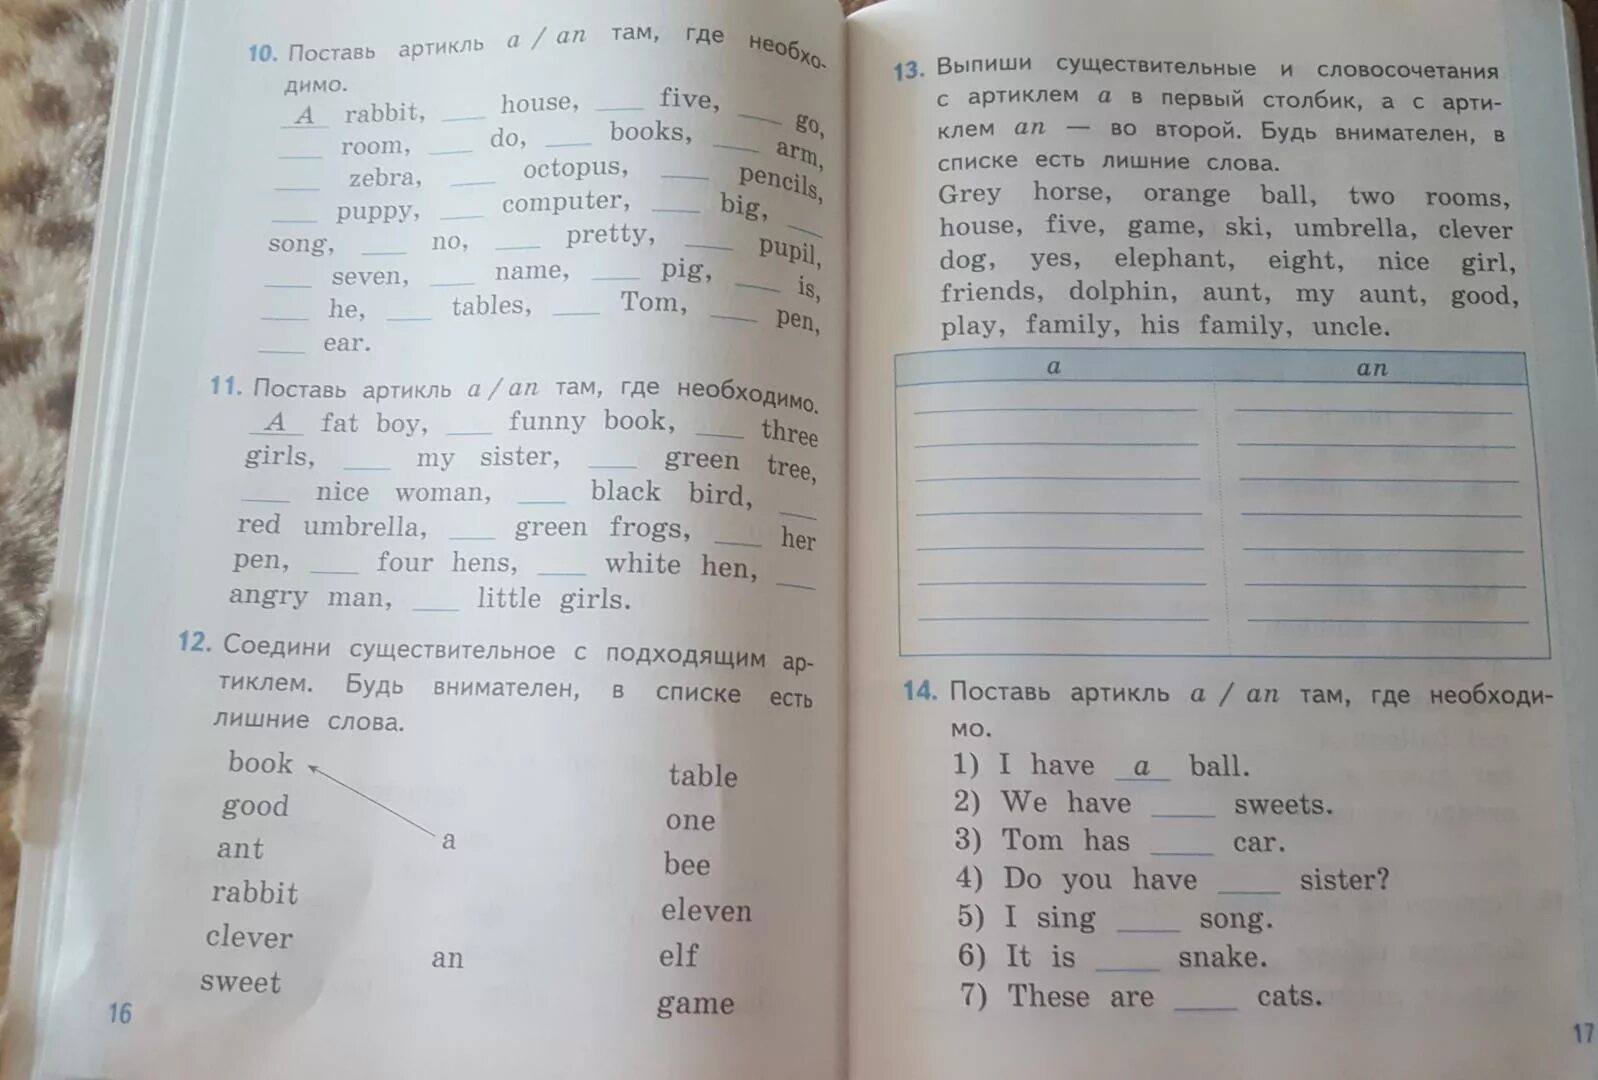 10. Поставь артикль a / an там, где необхо-
димо.
A rabbit, ___ house, ___ five, ___ go,
___ room, ___ do, ___ books, ___ arm,
___ zebra, ___ octopus, ___ pencils,
___ puppy, ___ computer, ___ big, ___
song, ___ no, ___ pretty, ___ pupil,
___ seven, ___ name, ___ pig, ___ is,
___ he, ___ tables, ___ Tom, ___ pen,
___ ear.
11. Поставь артикль a / an там, где необходимо.
A fat boy, ___ funny book, ___ three
girls, ___ my sister, ___ green tree,
___ nice woman, ___ black bird, ___
red umbrella, ___ green frogs, ___ her
pen, ___ four hens, ___ white hen, ___
angry man, ___ little girls.
12. Соедини существительное с подходящим ар-
тиклем. Будь внимателен, в списке есть
лишние слова.
book
good
ant
rabbit
clever
sweet
a
an
table
one
bee
eleven
elf
game
16
13. Выпиши существительные и словосочетания
с артиклем a в первый столбик, а с арти-
клем an — во второй. Будь внимателен, в
списке есть лишние слова.
Grey horse, orange ball, two rooms,
house, five, game, ski, umbrella, clever
dog, yes, elephant, eight, nice girl,
friends, dolphin, aunt, my aunt, good,
play, family, his family, uncle.
a an
14. Поставь артикль a / an там, где необходи-
мо.
1) I have a ball.
2) We have ___ sweets.
3) Tom has ___ car.
4) Do you have ___ sister?
5) I sing ___ song.
6) It is ___ snake.
7) These are ___ cats.
17